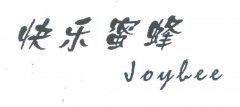 快乐蜜蜂
Joybee